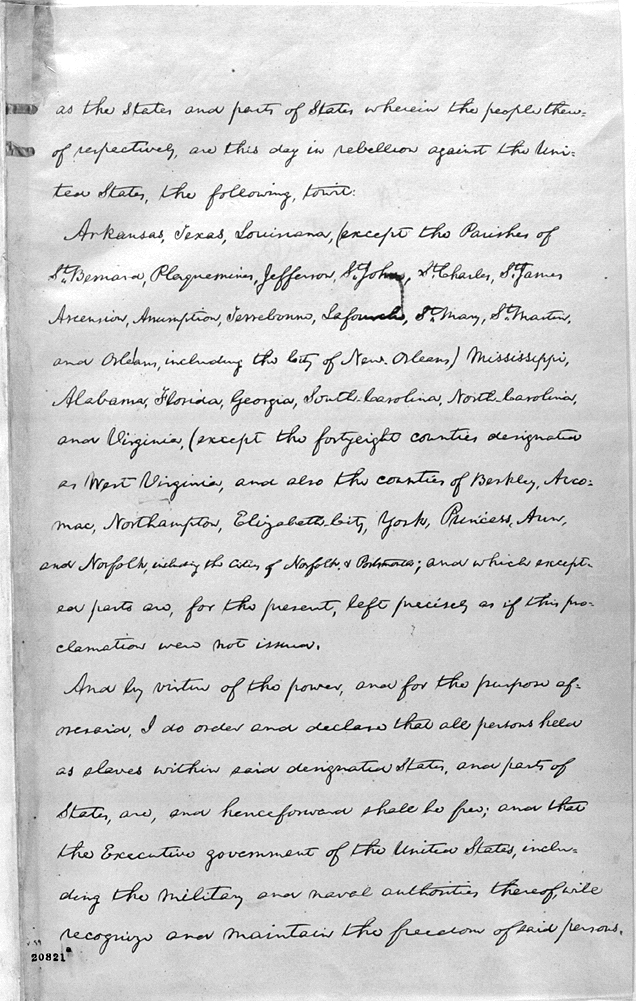 as the States and parts of States wherein the people there=
of respectively, are this day in rebellion against the Uni=
ted States, the following, towit:
Arkansas, Texas, Louisiana, (except the Parishes of
St. Bernard, Plaquemines, Jefferson, St. John, St. Charles, St. James
Ascension, Assumption, Terrebonne, Lafourche, St. Mary, St. Martin,
and Orleans, including the City of New-Orleans) Mississippi,
Alabama, Florida, Georgia, South-Carolina, North-Carolina,
and Virginia, (except the fortyeight counties designated
as West Virginia, and also the counties of Berkley, Acco=
mac, Northampton, Elizabeth-City, York, Princess, Ann,
and Norfolk, including the cities of Norfolk & Portsmouth; and which except=
ed parts are, for the present, left precisely as if this pro=
clamation were not issued.
And by virtue of the power, and for the purpose af=
oresaid, I do order and declare that all persons held
as slaves within said designated States, and parts of
States, are, and henceforward shall be free; and that
the Executive government of the United States, inclu=
ding the military and naval authorities thereof, will
recognize and maintain the freedom of said persons.
20821